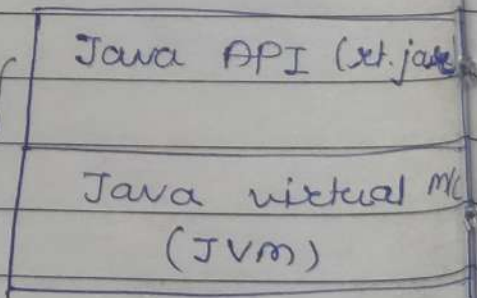 Java API (rt.jar
Java virtual M/C
(JVM)